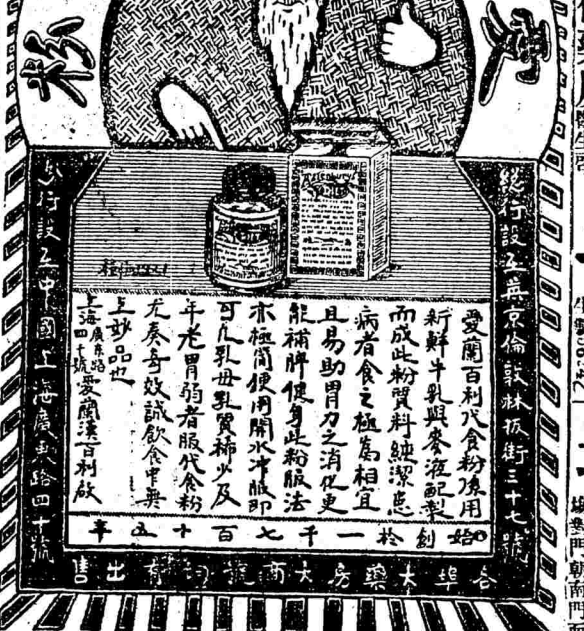 粉
總行設立英京倫敦林板街三十七號
愛蘭百利代食粉係用
新鮮牛乳與麥液配製
而成此粉質料純潔患
病者食之極為相宜
且易助胃力之消化更
能補脾健身此粉服法
亦極簡便用開水沖服即
可凡乳母乳質稀少及
年老胃弱者服代食粉
尤奏奇效誠飲食中無
上妙品也
上海廣東路四十號愛蘭漢百利啟
分行設立中國上海廣東路四十號
始創於一千七百十五年
各埠大藥房大商號均有出售